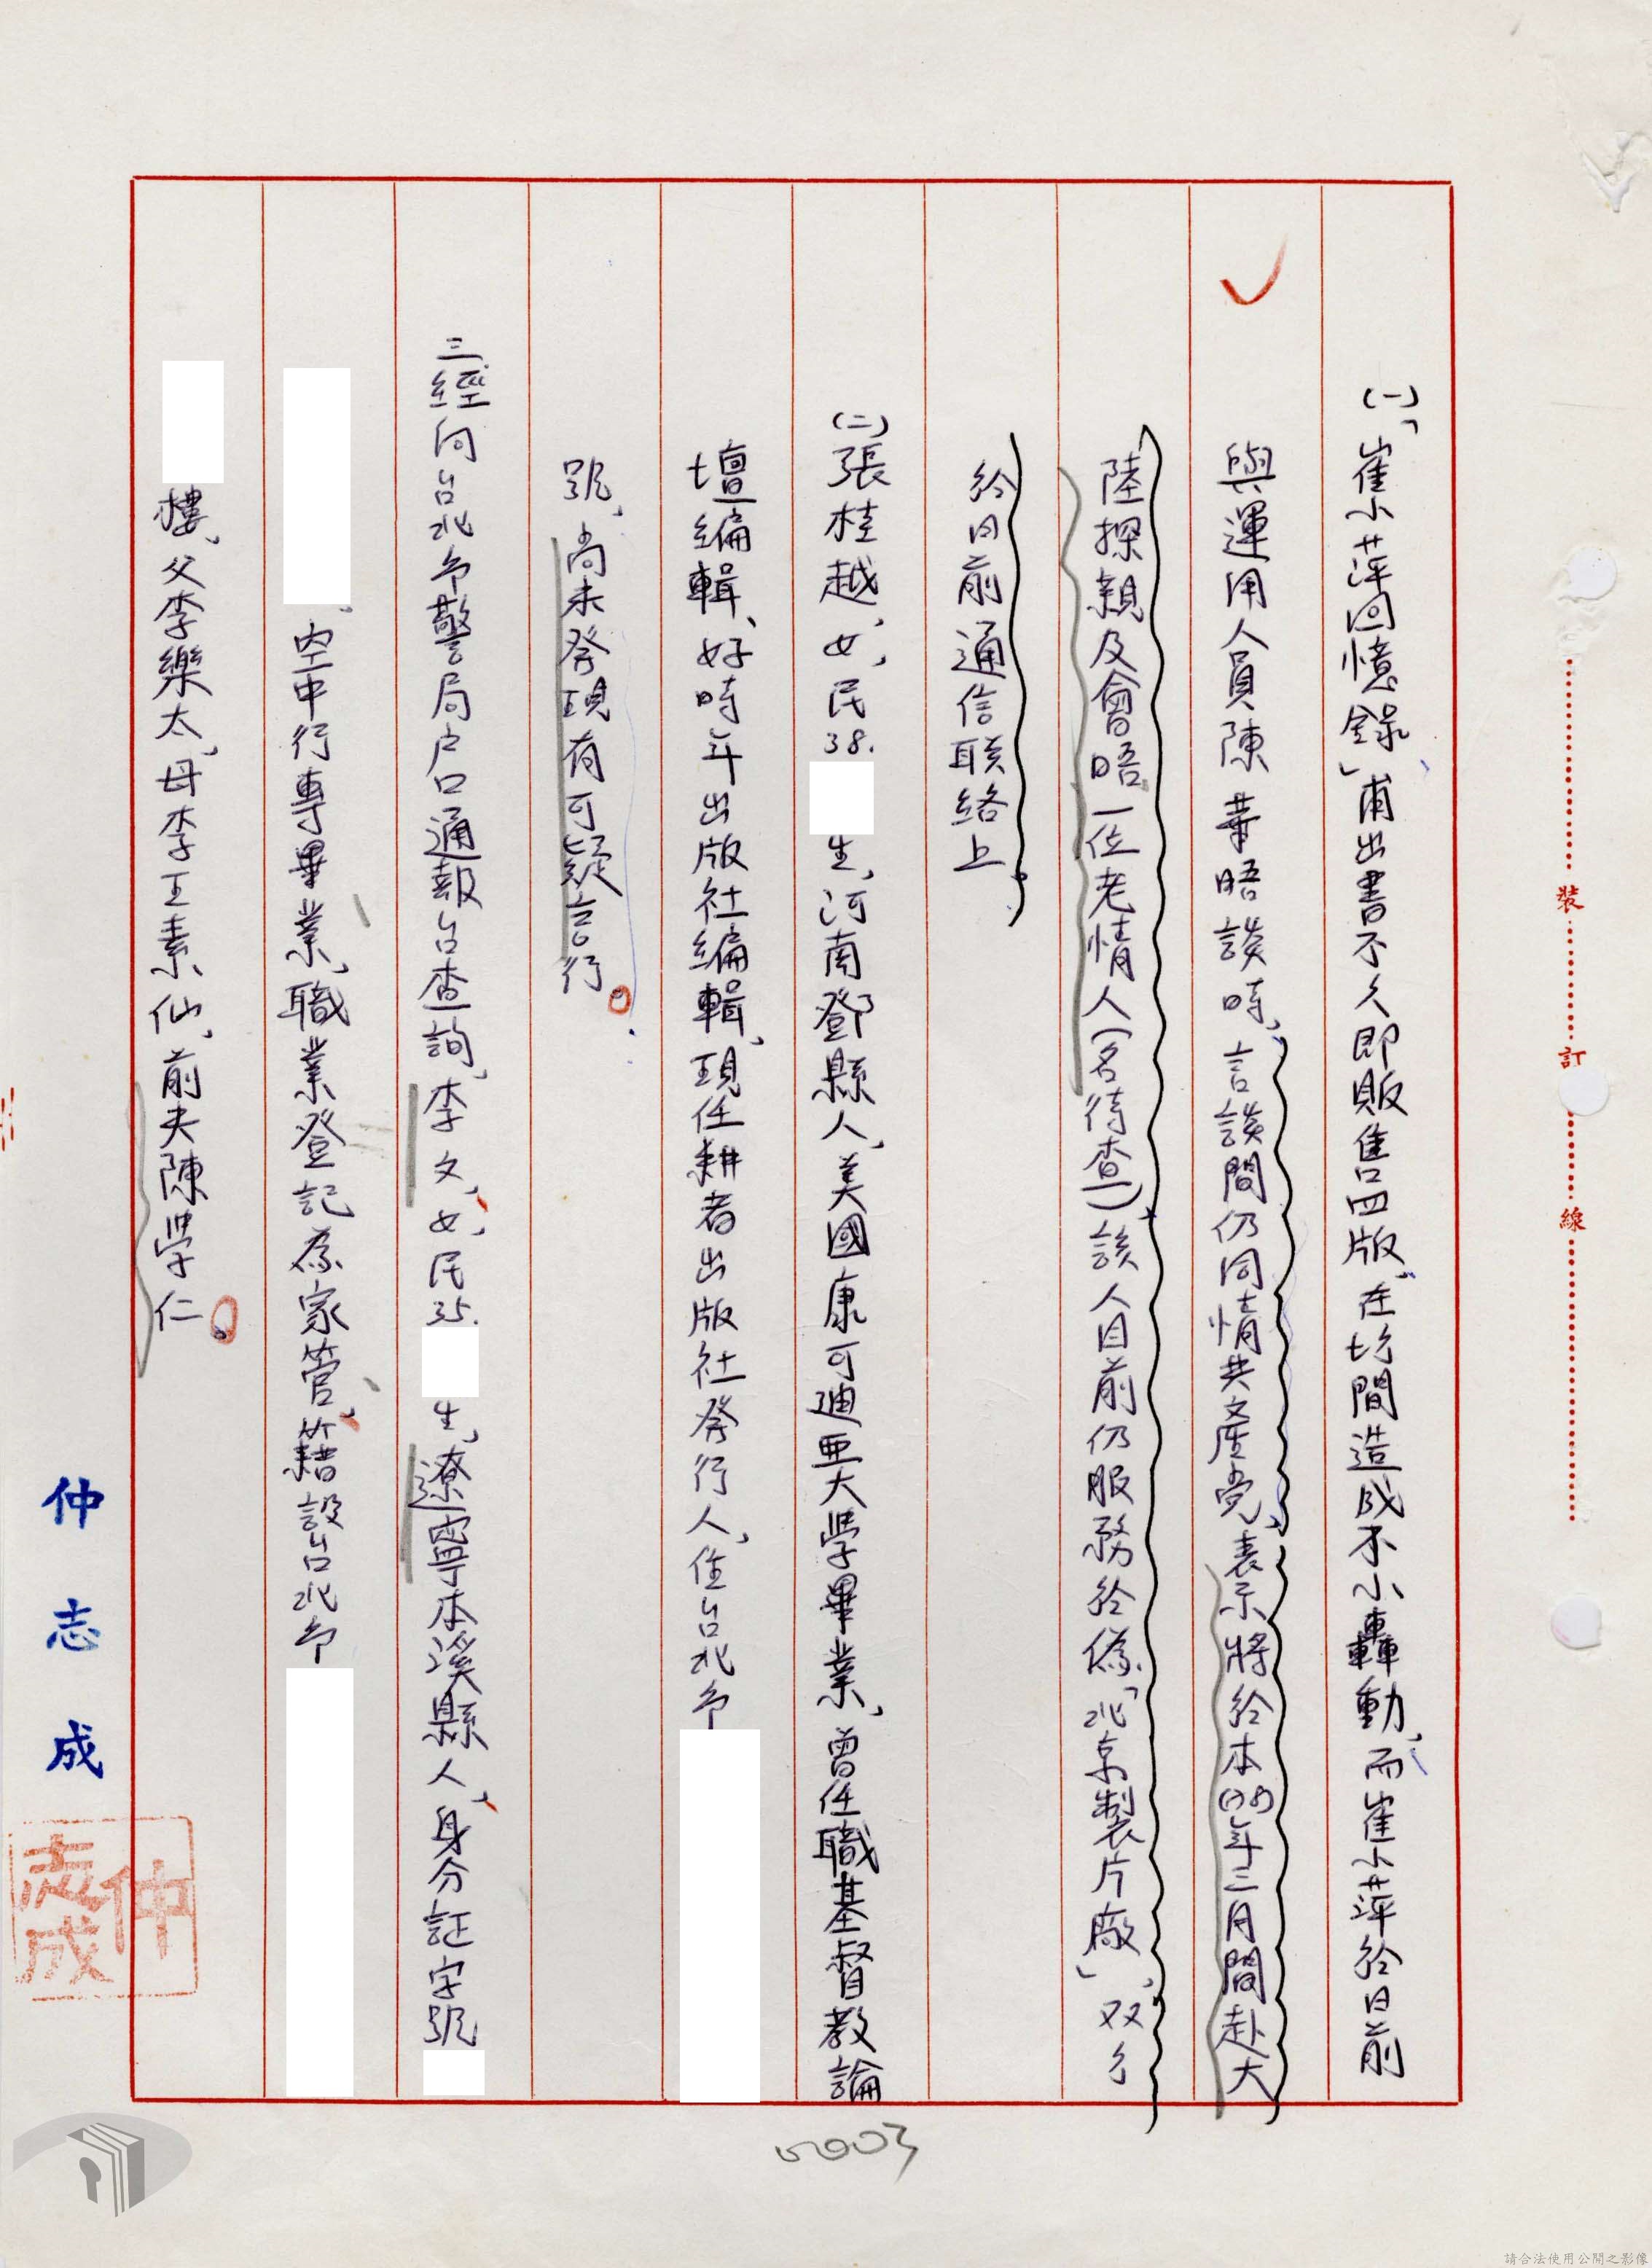 (一)、「崔小萍回憶錄」甫出書不久即販售四版、在坊間造成不小轟動、而崔小萍於日前
與運用人員陳華晤談時、言談間仍同情共產党、表示將於本(89)年三月間赴大
陸探親及會晤一位老情人(名待查)、該人目前仍服務於偽「北京製片廠」、双方
於日前通信联絡上。
(二)張桂越、女、民38.生、河南鄧縣人、美國康可迪亞大學畢業、曾任職基督教論
壇編輯、好時年出版社編輯、現任耕者出版社發行人、住台北市
號、尚未發現有可疑言行。
三、經向台北市警局户口通報台查詢、李文、女、民35.生、遼寧本溪縣人、身分証字號
、空中行專畢業、職業登記為家管、籍設台北市
樓、父李樂太、母李王素仙、前夫陳學仁。
仲志成
仲志成
裝
訂
線
請合法使用公開之影像